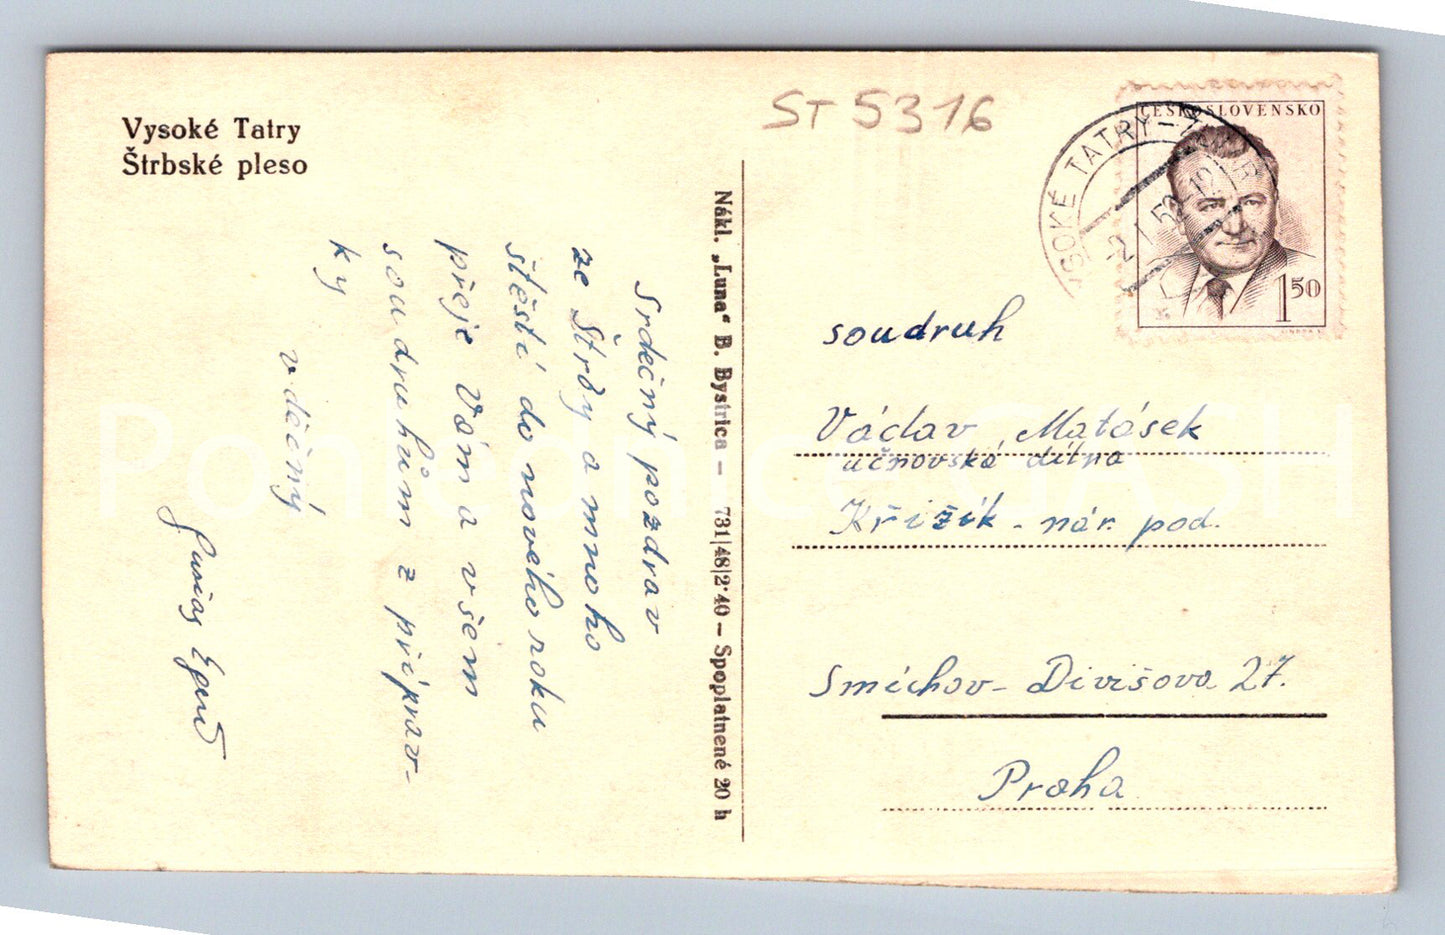 Vysoké Tatry
Štrbské pleso
ST 5316
ČESKOSLOVENSKO
1 50
VYSOKÉ TATRY
-2.I.52-12
Srdečný pozdrav
ze Štrby a mnoho
štěstí do nového roku
přeje Vám a všem
soudruhům z příprav-
ky
vděčný
Nákl. „Luna“ B. Bystrica — 731|48|2·40 — Spoplatnené 20 h
soudruh
Václav Matásek
učňovská dílna
Křižík - nár. pod.
Smíchov - Divišova 27.
Praha
Pohlednice GASH